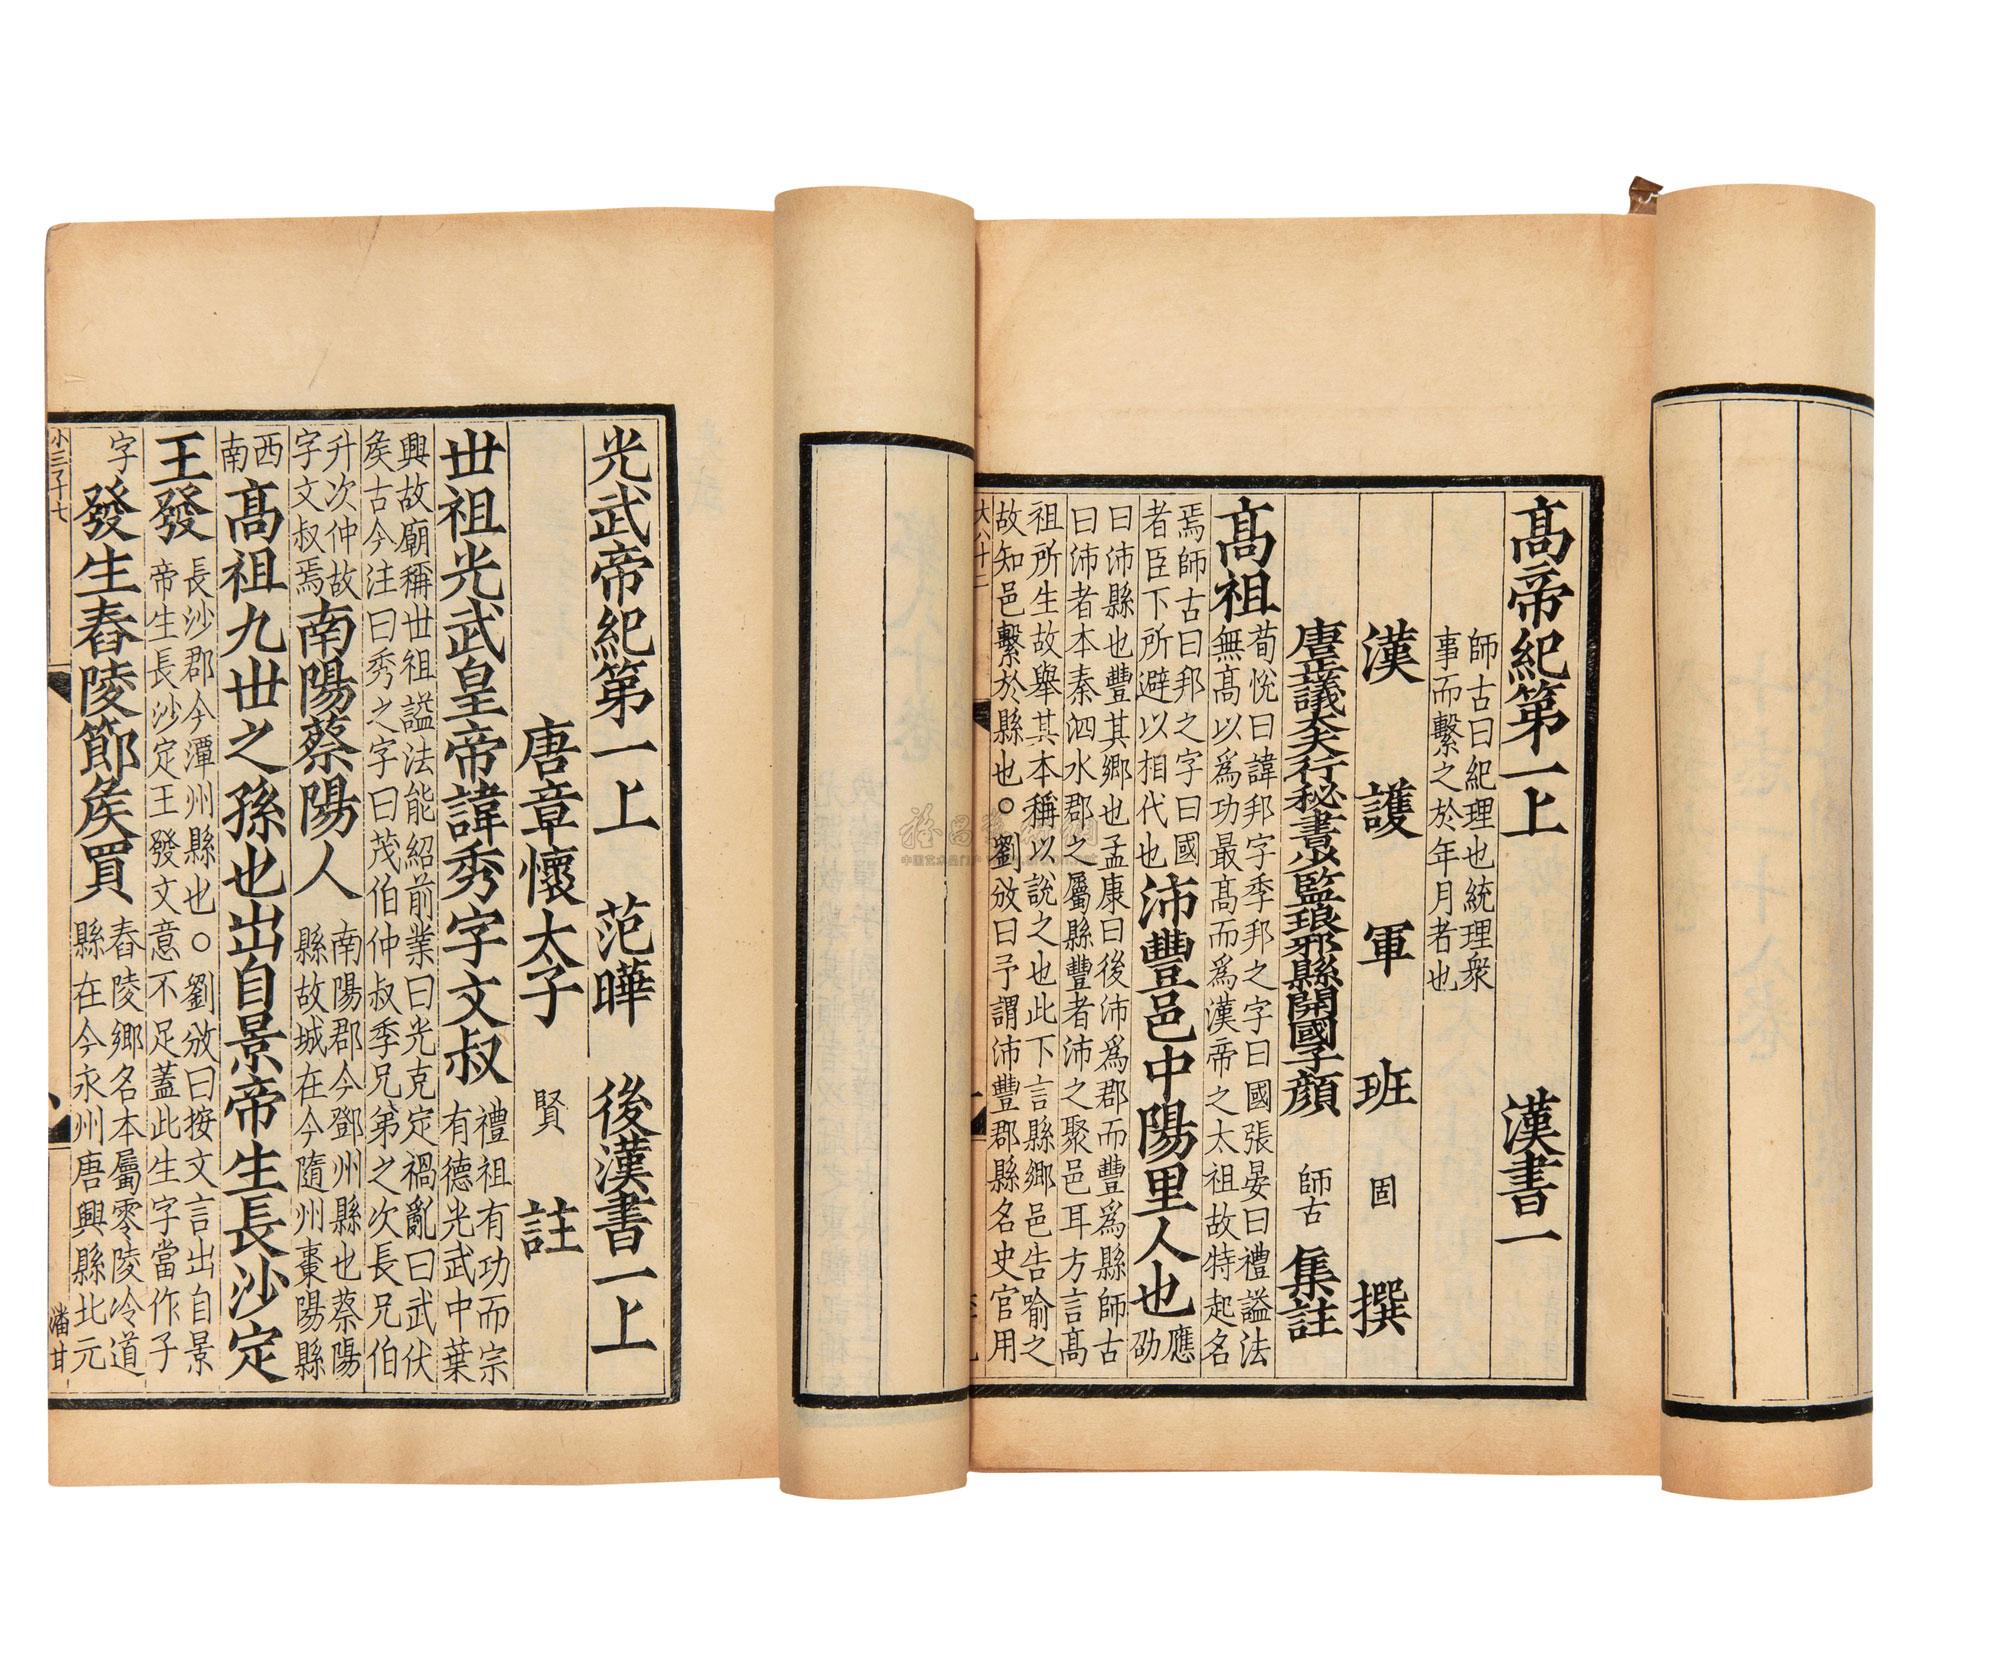 高帝紀第一上　漢書一
師古曰紀理也統理衆
事而繫之於年月者也
漢護軍班固撰
唐正議大夫行秘書少監琅邪縣開國子顏師古集註
高祖
荀恱曰諱邦字季邦之字曰國張晏曰禮謚法
無高以爲功最高而爲漢帝之太祖故特起名
焉師古曰邦之字曰國
者臣下所避以相代也
沛豐邑中陽里人也
應
劭
曰沛縣也豐其鄉也孟康曰後沛爲郡而豐爲縣師古
曰沛者本秦泗水郡之屬縣豐者沛之聚邑耳方言高
祖所生故舉其本稱以說之也此下言縣鄉邑告喻之
故知邑繫於縣也○劉攽曰予謂沛豐郡縣名史官用
大八十二
光武帝紀第一上　范曄　後漢書一上
唐章懷太子賢註
丗祖光武皇帝諱秀字文叔
禮祖有功而宗
有德光武中葉
興故廟稱丗祖謚法能紹前業曰光克定禍亂曰武伏
矦古今注曰秀之字曰茂伯仲叔季兄弟之次長兄伯
升次仲故
字文叔焉
南陽蔡陽人
南陽郡今鄧州縣也蔡陽
縣故城在今隨州棗陽縣
西
南
高祖九丗之孫也出自景帝生長沙定
王發
長沙郡今潭州縣也○劉攽曰按文言出自景
帝生長沙定王發文意不足蓋此生字當作子
字
發生舂陵節矦買
舂陵鄉名本屬零陵泠道
縣在今永州唐興縣北元
小三千七
潘甘